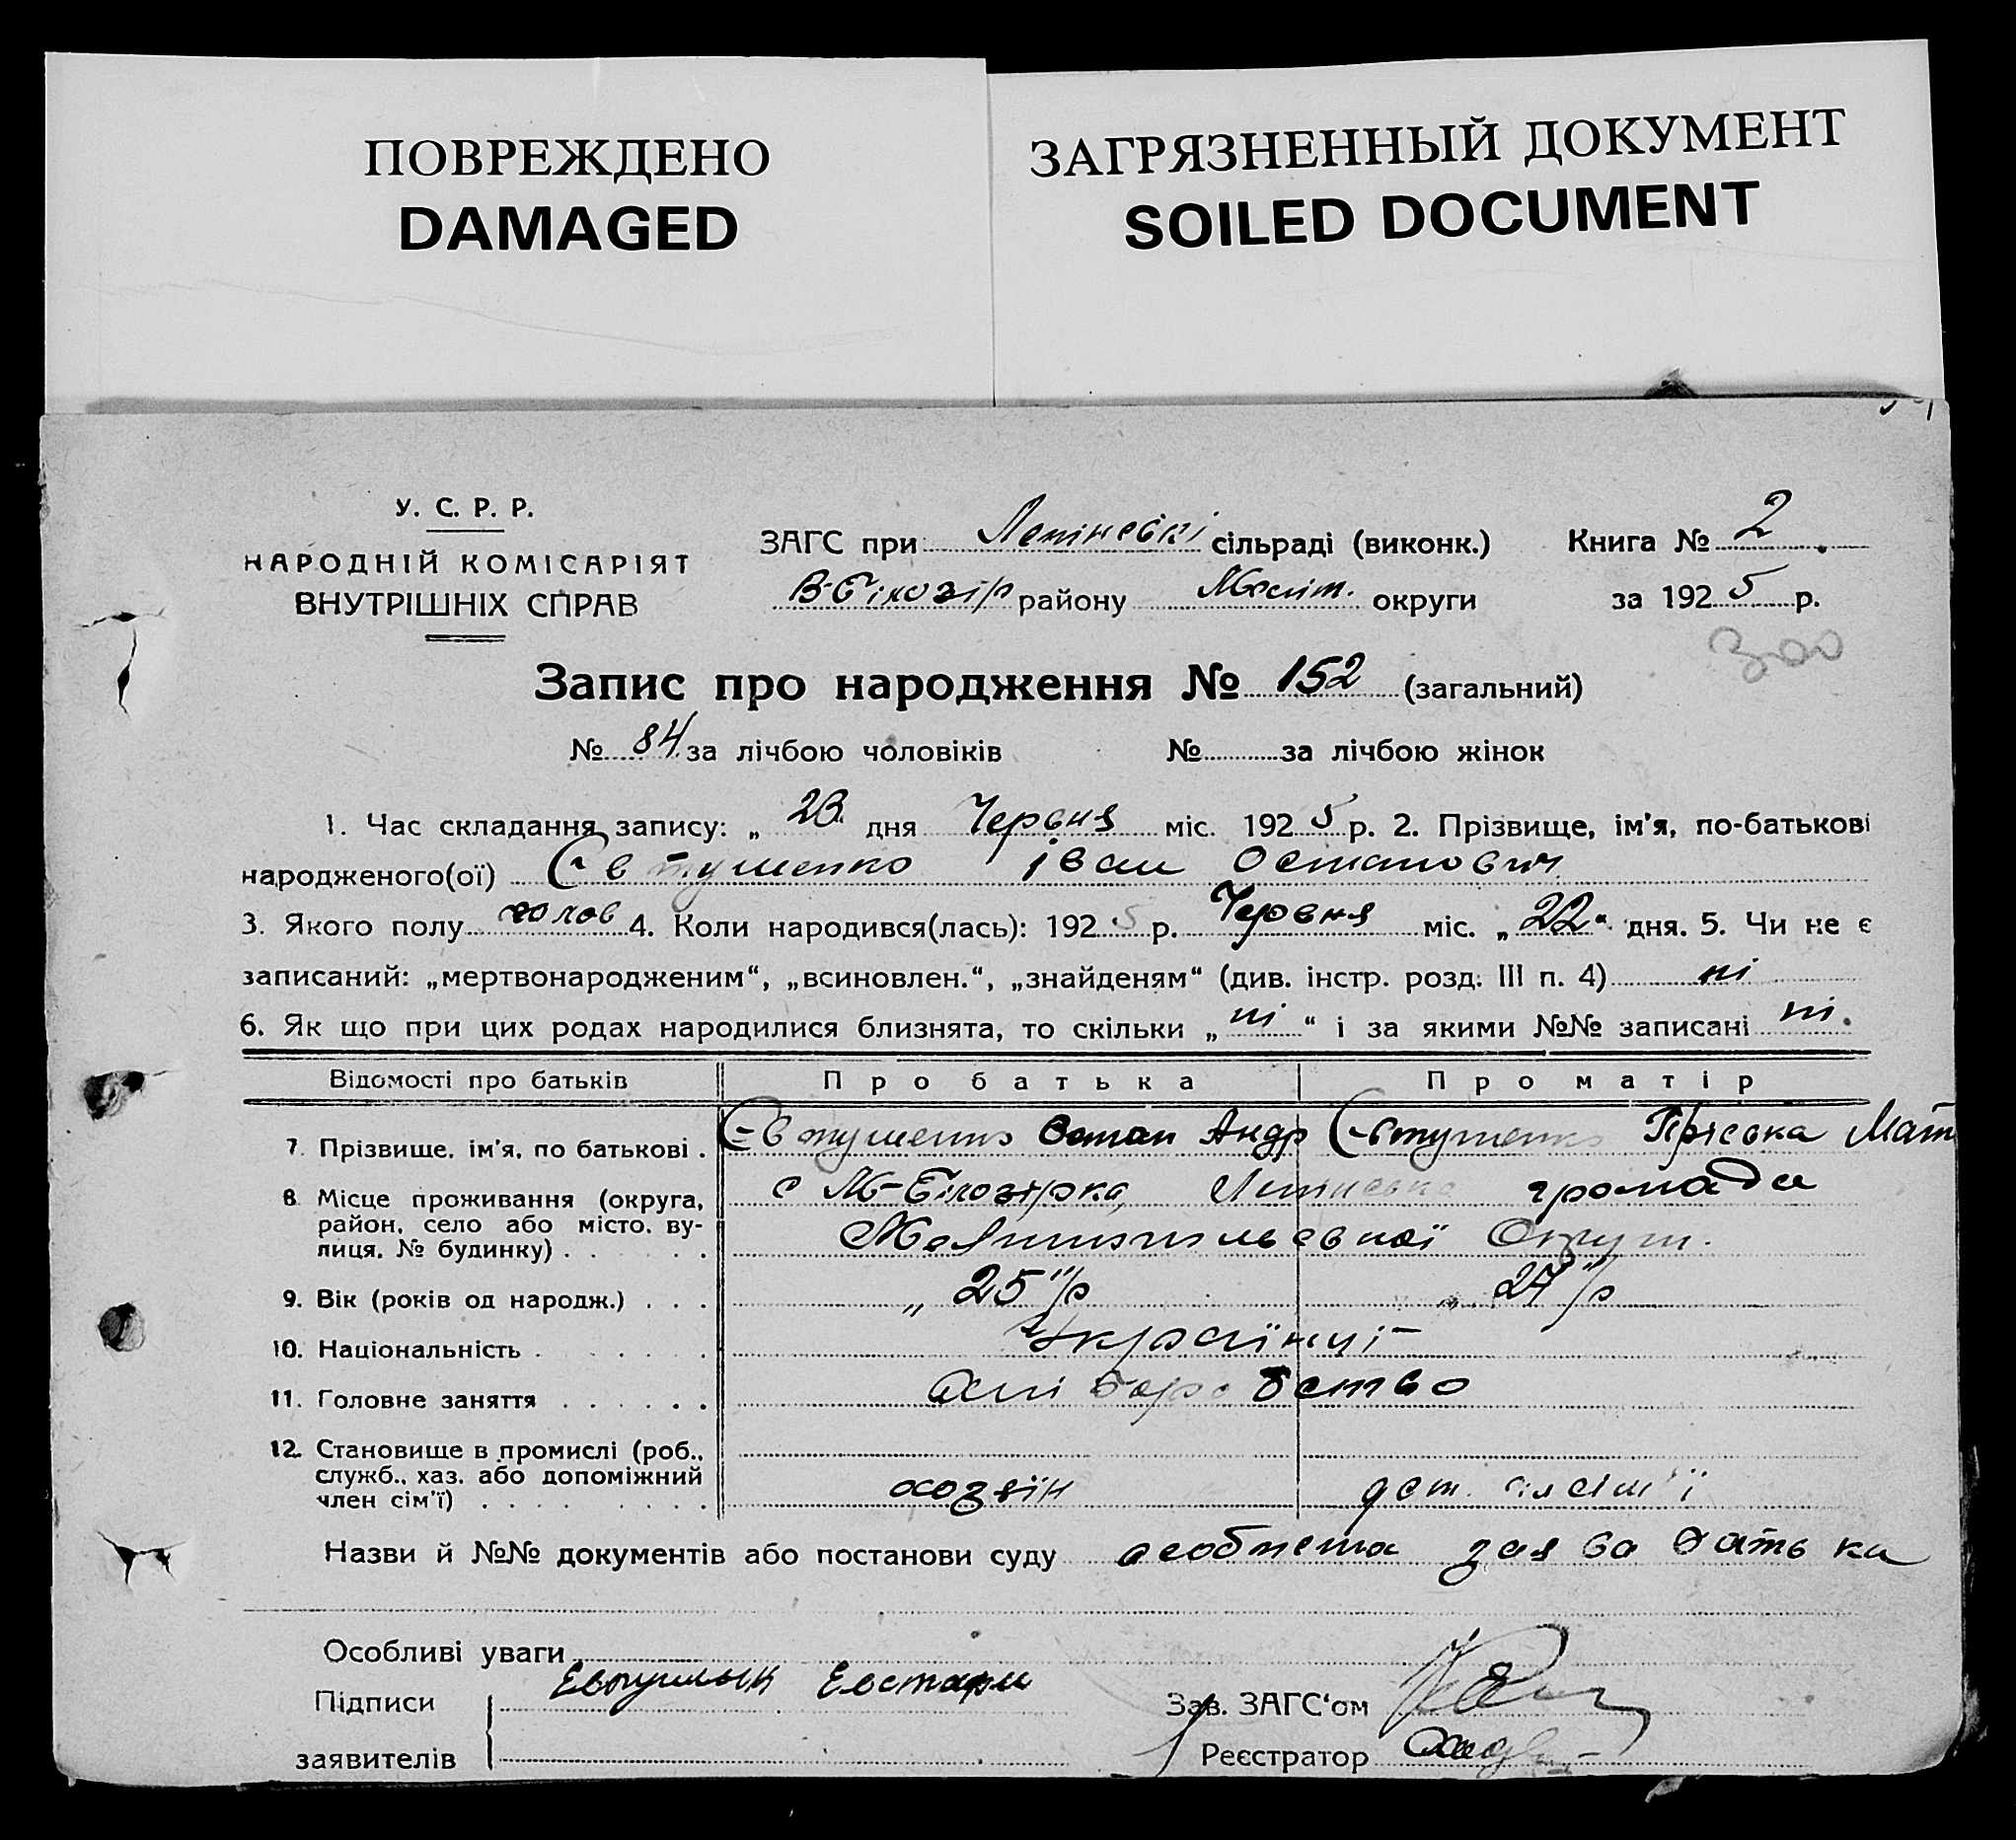 ПОВРЕЖДЕНО
DAMAGED
ЗАГРЯЗНЕННЫЙ ДОКУМЕНТ
SOILED DOCUMENT
У. С. Р. Р.
НАРОДНІЙ КОМІСАРІЯТ
ВНУТРІШНІХ СПРАВ
ЗАГС при Ленінські сільраді (виконк.)
В-Білозір району Меліт. округи
Книга № 2
за 1925 р.
300
Запис про народження № 152 (загальний)
№ 84 за лічбою чоловіків № за лічбою жінок
1. Час складання запису: „ 23 дня Червня міс. 1925 р. 2. Прізвище, ім'я, по-батькові
народженого(ої) Євтушенко Іван Остапович
3. Якого полу чолов 4. Коли народився(лась): 1925 р. Червня міс. „22“ дня. 5. Чи не є
записаний: „мертвонародженим“, „всиновлен.“, „знайденям“ (див. інстр. розд. III п. 4) ні
6. Як що при цих родах народилися близнята, то скільки „ ні “ і за якими №№ записані ні.
Відомості про батьків Про батька Про матір
7. Прізвище, ім'я, по батькові . Євтушенко Остап Андр Євтушенко Пріська Мат
8. Місце проживання (округа, район, село або місто, вулиця, № будинку) . с М-Білозірка, Ленінська громада
Мелітопольської Округи.
9. Вік (років од народж.) . . . „25"/р „27"/р
10. Національність . Українці
11. Головне заняття . . . . . . Хліборобство
12. Становище в промислі (роб., служб., хаз. або допоміжний член сім'ї) . хозяїн доп. чл сім'ї
Назви й №№ документів або постанови суду особиста заява батька
Особливі уваги
Підписи
заявителів
Зав. ЗАГС'ом
Реєстратор